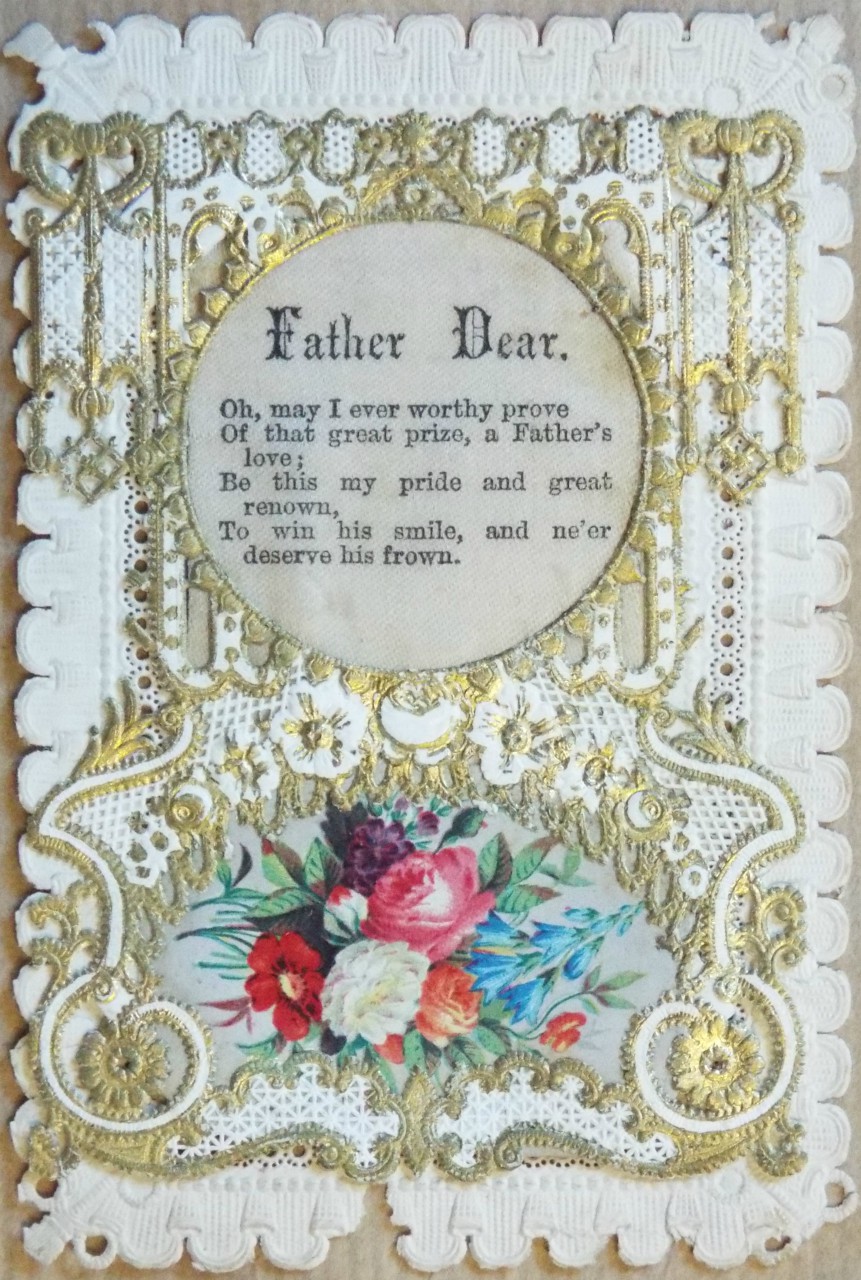 Father Dear.
Oh, may I ever worthy prove
Of that great prize, a Father's
love;
Be this my pride and great
renown,
To win his smile, and ne'er
deserve his frown.